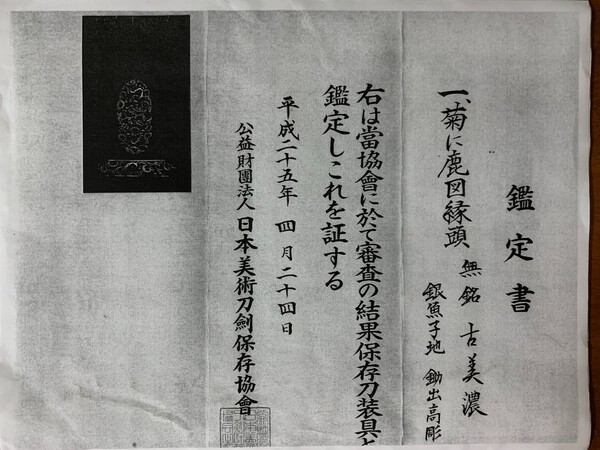 鑑定書
一、菊に鹿図縁頭 無銘 古美濃
銀魚子地 鋤出高彫
右は當協會に於て審査の結果保存刀装具と
鑑定しこれを証する
平成二十五年 四月二十四日
公益財團法人 日本美術刀劍保存協會